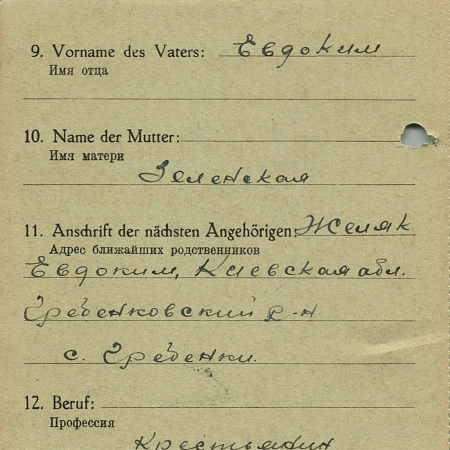 9. Vorname des Vaters: Евдоким
Имя отца
10. Name der Mutter:
Имя матери
Зеленская
11. Anschrift der nächsten Angehörigen: Желяк
Адрес ближайших родственников
Евдоким, Киевская обл.
Гребенковский р-н
с. Гребенки.
12. Beruf:
Профессия
Крестьянин